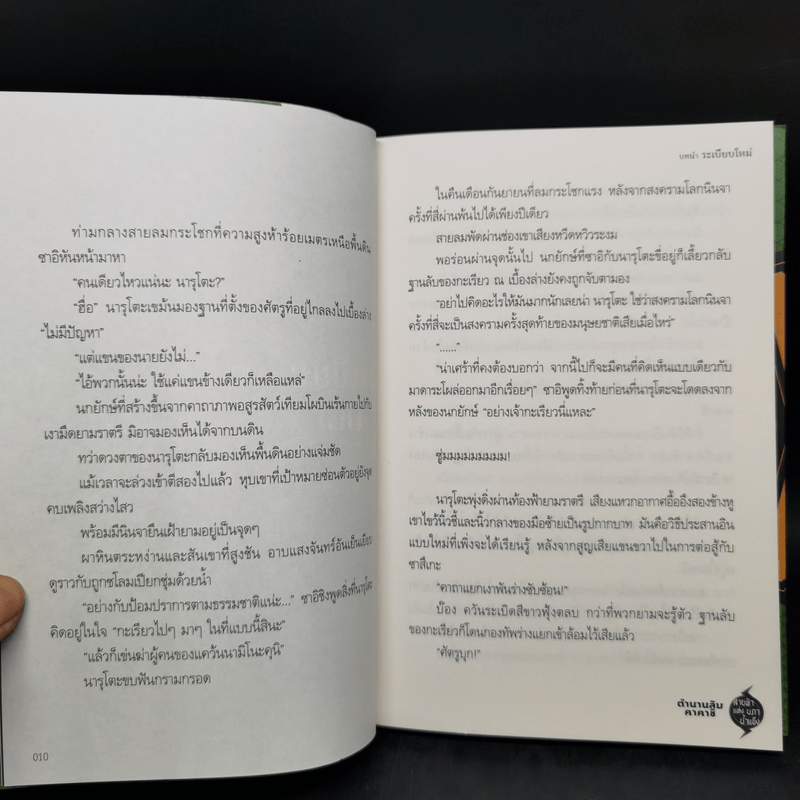 ท่ามกลางสายลมกระโชกที่ความสูงห้าร้อยเมตรเหนือพื้นดิน
ซาอิหันหน้ามาหา
“คนเดียวไหวแน่นะ นารุโตะ?”
“ฮื่อ” นารุโตะเขม้นมองฐานที่ตั้งของศัตรูที่อยู่ไกลลงไปเบื้องล่าง
“ไม่มีปัญหา”
“แต่แขนของนายยังไม่...”
“ไอ้พวกนั้นน่ะ ใช้แค่แขนข้างเดียวก็เหลือแหล่”
นกยักษ์ที่สร้างขึ้นจากคาถาภาพอสูรสัตว์เทียมโผบินเร้นกายไปกับ
เงามืดยามราตรี มิอาจมองเห็นได้จากบนดิน
ทว่าดวงตาของนารุโตะกลับมองเห็นพื้นดินอย่างแจ่มชัด
แม้เวลาจะล่วงเข้าตีสองไปแล้ว หุบเขาที่เป้าหมายซ่อนตัวอยู่ยังจุด
คบเพลิงสว่างไสว
พร้อมมีนินจายืนเฝ้ายามอยู่เป็นจุดๆ
ผาหินตระหง่านและสันเขาที่สูงชัน อาบแสงจันทร์อันเย็นเยียบ
ดูราวกับถูกชโลมเปียกชุ่มด้วยน้ำ
“อย่างกับป้อมปราการตามธรรมชาติแน่ะ...” ซาอิชิงพูดสิ่งที่นารุโตะ
คิดอยู่ในใจ “กะเรียวไปๆ มาๆ ในที่แบบนี้สินะ”
“แล้วก็เข่นฆ่าผู้คนของแคว้นนามิโนะคุนิ”
นารุโตะขบฟันกรามกรอด
010
บทนำ ระเบียบใหม่
ในคืนเดือนกันยายนที่ลมกระโชกแรง หลังจากสงครามโลกนินจา
ครั้งที่สี่ผ่านพ้นไปได้เพียงปีเดียว
สายลมพัดผ่านช่องเขาเสียงหวีดหวิวระงม
พอร่อนผ่านจุดนั้นไป นกยักษ์ที่ซาอิกับนารุโตะขี่อยู่ก็เลี้ยวกลับ
ฐานลับของกะเรียว ณ เบื้องล่างยังคงถูกจับตามอง
“อย่าไปคิดอะไรให้มันมากนักเลยน่า นารุโตะ ใช่ว่าสงครามโลกนินจา
ครั้งที่สี่จะเป็นสงครามครั้งสุดท้ายของมนุษยชาติเสียเมื่อไหร่”
“......”
“น่าเศร้าที่คงต้องบอกว่า จากนี้ไปก็จะมีคนที่คิดเห็นแบบเดียวกับ
มาดาระโผล่ออกมาอีกเรื่อยๆ” ซาอิพูดทิ้งท้ายก่อนที่นารุโตะจะโดดลงจาก
หลังของนกยักษ์ “อย่างเจ้ากะเรียวนี่แหละ”
ซู่มมมมมมมมม!
นารุโตะพุ่งดิ่งผ่านท้องฟ้ายามราตรี เสียงแหวกอากาศอื้ออึงสองข้างหู
เขาไขว้นิ้วชี้และนิ้วกลางของมือซ้ายเป็นรูปกากบาท มันคือวิธีประสานอิน
แบบใหม่ที่เพิ่งจะได้เรียนรู้ หลังจากสูญเสียแขนขวาไปในการต่อสู้กับ
ซาสึเกะ
“คาถาแยกเงาพันร่างซับซ้อน!”
บ๊อง ควันระเบิดสีขาวฟุ้งตลบ กว่าที่พวกยามจะรู้ตัว ฐานลับ
ของกะเรียวก็โดนกองทัพร่างแยกเข้าล้อมไว้เสียแล้ว
“ศัตรูบุก!”
ตำนานลับ
คาคาชิ
สายฟ้า
แห่ง นภา
น้ำแข็ง